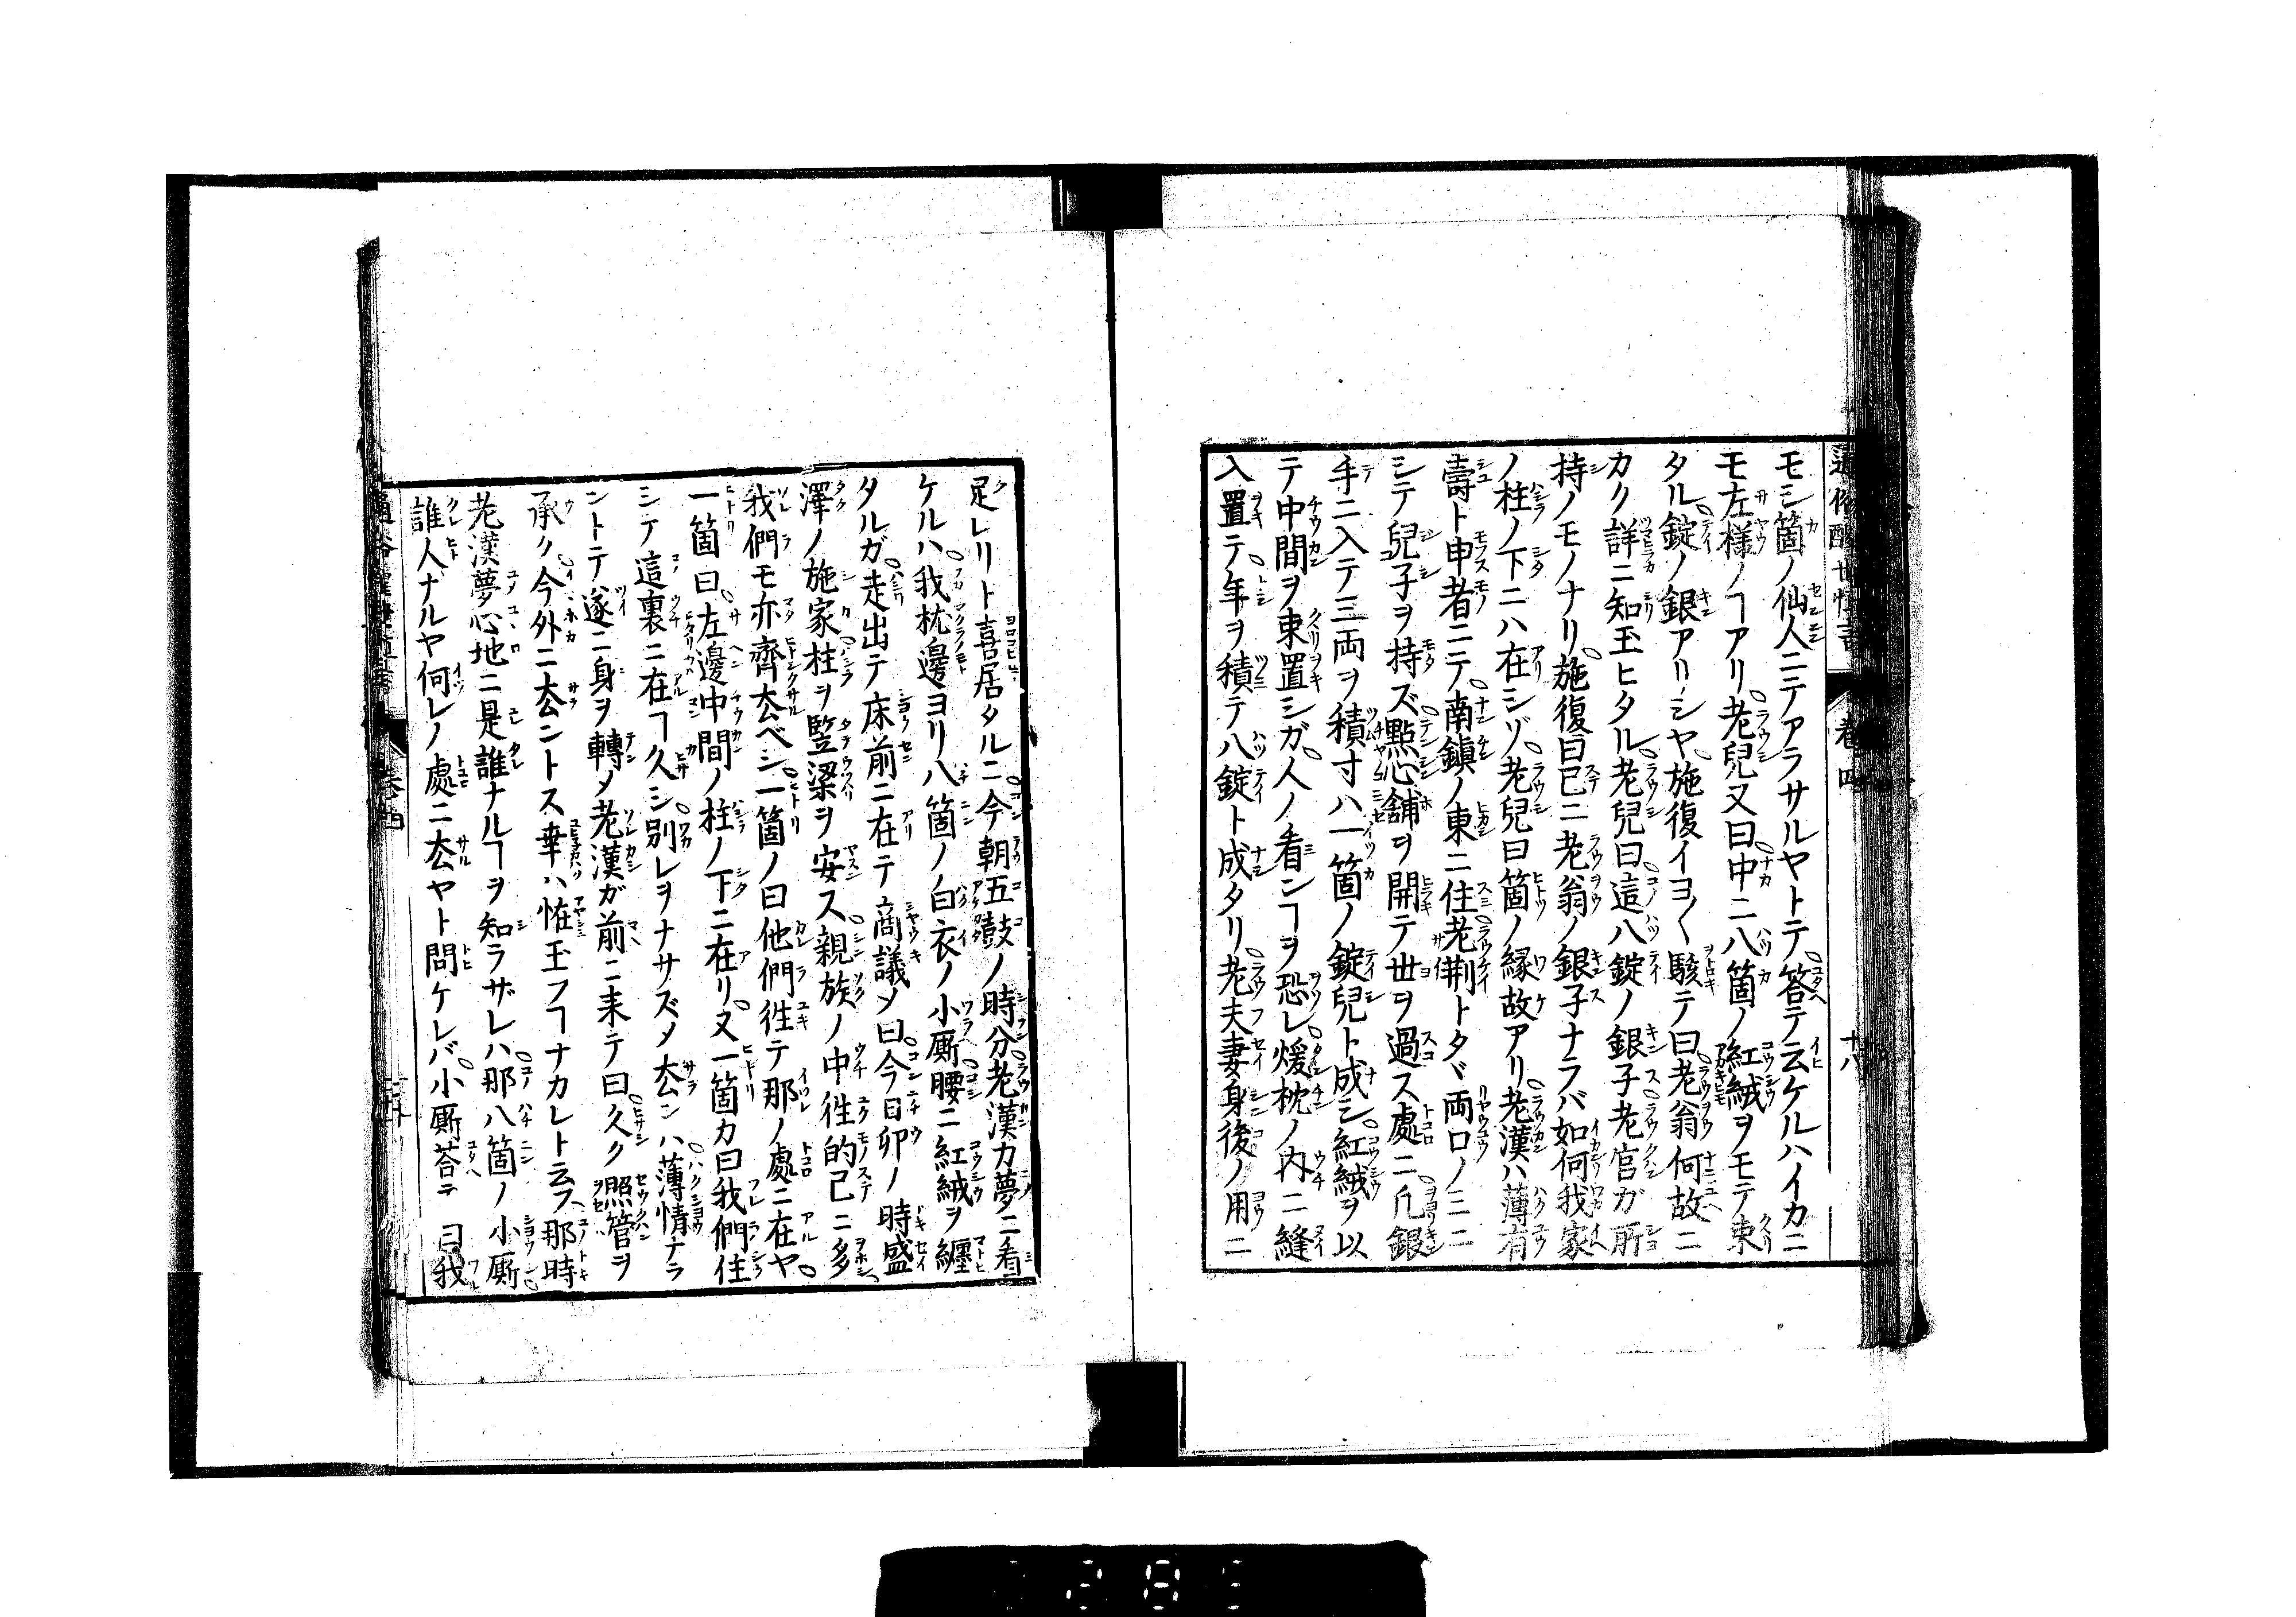 モシ箇ノ仙人ニテアラサルヤトテ答テ云ケルハイカニ
モ左様ノヿアリ老兒又曰中ニ八箇ノ紅絨ヲモテ束
タル錠ノ銀アリシヤ施復イヨ〳〵駭テ曰老翁何故ニ
カク詳ニ知玉ヒタル老兒曰這八錠ノ銀子老官ガ所
持ノモノナリ施復曰已ニ老翁ノ銀子ナラバ如何我家
ノ柱ノ下ニハ在シゾ老兒曰箇ノ縁故アリ老漢ハ薄有
壽ト申者ニテ南鎮ノ東ニ住老荆トタヾ両口ノミニ
シテ兒子ヲ持ズ點心舗ヲ開テ世ヲ過ス處ニ凢銀
手ニ入テ三両ヲ積寸ハ一箇ノ錠兒ト成シ紅絨ヲ以
テ中間ヲ束置シガ人ノ看ンヿヲ恐レ煖枕ノ内ニ縫
入置テ年ヲ積テ八錠ト成タリ老夫妻身後ノ用ニ
足レリト喜居タルニ今朝五鼓ノ時分老漢カ夢ニ看
ケルハ我枕邊ヨリ八箇ノ白衣ノ小厮腰ニ紅絨ヲ纒
タルガ走出テ床前ニ在テ商議メ曰今日卯ノ時盛
澤ノ施家柱ヲ竪梁ヲ安ス親族ノ中徃的已ニ多
我們モ亦齊厺ベシ一箇ノ曰他們徃テ那ノ處ニ在ヤ
一箇曰左邊中間ノ柱ノ下ニ在リ又一箇カ曰我們住
シテ這裏ニ在ヿ久シ別レヲナサズメ厺ンハ薄情ナラ
ントテ遂ニ身ヲ轉メ老漢ガ前ニ来テ曰久ク照管ヲ
承ク今外ニ厺ントス幸ハ恠玉フヿナカレト云フ那時
老漢夢心地ニ是誰ナルヿヲ知ラザレハ那八箇ノ小厮
誰人ナルヤ何レノ處ニ厺ヤト問ケレバ小厮荅テ曰我